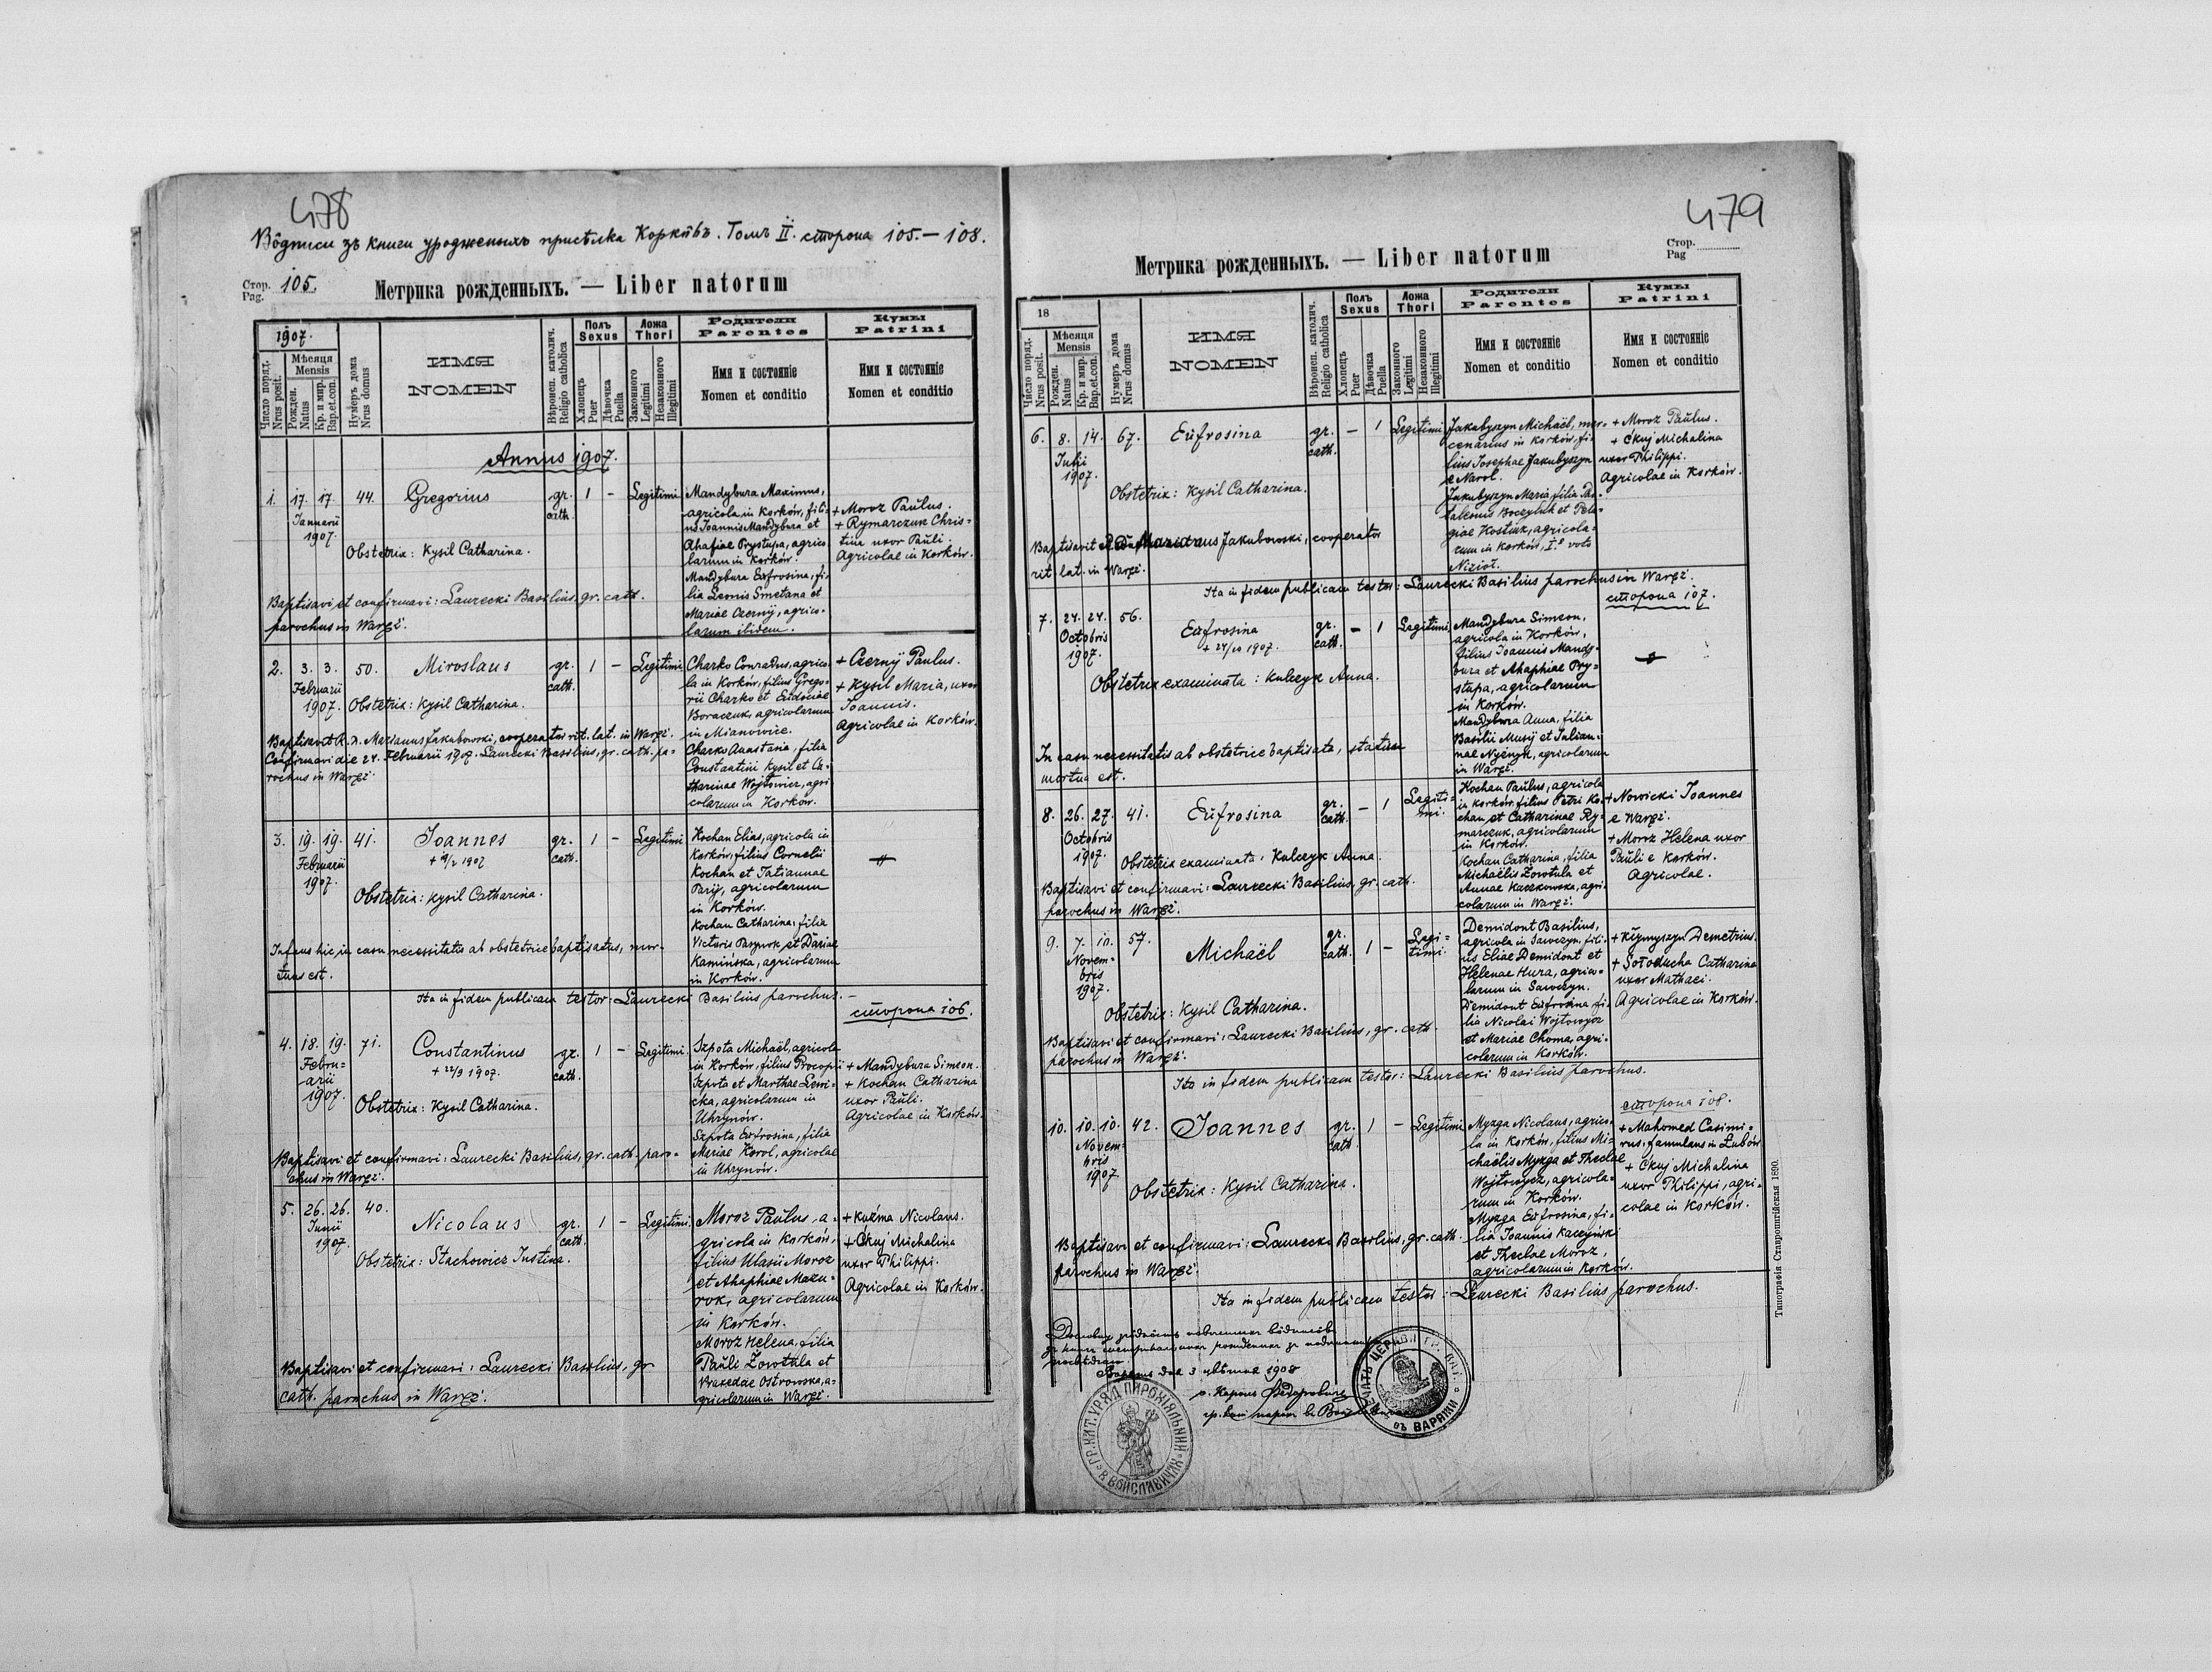 478
Вôдписи зъ книги урожденыхъ присѣлка Корківъ. Томъ II. сторона 105.—108.
Стор. Pag. 105.
Метрика рожденныхъ. — Liber natorum
1907.
Число поряд. Nrus posit.
Мѣсяця Mensis
Рожден. Natus
Кр. и мир. Bap. et con.
Нумеръ дома Nrus domus
ИМЯ
NOMEN
Вѣроисп. католич. Religio catholica
Полъ Sexus
Хлопецъ Puer
Дѣвочка Puella
Ложа Thori
Законного Legitimi
Незаконного Illegitimi
Родители
Parentes
Имя и состоянiе
Nomen et conditio
Кумы
Patrini
Имя и состоянiе
Nomen et conditio
Annus 1907.
1. 17. 17. 44. Gregorius gr. cath. 1 – Legitimi
Januarii
1907.
Obstetrix: Kysil Catharina.
Baptisavi et confirmavi: Laurecki Basilius, gr. cath.
parochus in Waręż.
Mandybura Maximus,
agricola in Korków, fili-
us Joannis Mandybura et
Ahafiae Prystupa, agrico-
larum in Korków.
Mandybura Eufrosina, fi-
lia Leonis Smetana et
Mariae Czernÿ, agrico-
larum ibidem.
+ Moroz Paulus.
+ Rymarczuk Chris-
tina uxor Pauli.
Agricolae in Korków.
2. 3. 3. 50. Miroslaus gr. cath. 1 – Legitimi
Februarii
1907.
Obstetrix: Kysil Catharina.
Baptisavit R. D. Marianus Jakubowski, cooperator rit. lat. in Waręż.
Confirmavi die 24. Februarii 1907. Laurecki Basilius, gr. cath. pa-
rochus in Waręż.
Charko Conradus, agrico-
la in Korków, filius Grego-
rii Charko et Eudociae
Boraczuk, agricolarum
in Mianowice.
Charko Anastasia, filia
Constantini Kysil et Ca-
tharinae Wojtowicz, agri-
colarum in Korków.
+ Czernÿ Paulus.
+ Kysil Maria, uxor
Joannis.
Agricolae in Korków.
3. 19. 19. 41. Joannes gr. cath. 1 – Legitimi
Februarii
1907.
Obstetrix: Kysil Catharina.
Infans hic in casu necessitatis ab obstetrice baptisatus, mor-
tuus est.
Kochan Elias, agricola in
Korków, filius Cornelii
Kochan et Tatiannae
Parij, agricolarum
in Korków.
Kochan Catharina, filia
Victoris Paspurk et Dariae
Kamińska, agricolarum
in Korków.
Ita in fidem publicam testor: Laurecki Basilius parochus. —
сторона 106.
4. 18. 19. 71. Constantinus gr. cath. 1 – Legitimi.
Febru-
arii
1907.
+ 22/9 1907.
Obstetrix: Kysil Catharina.
Baptisavi et confirmavi: Laurecki Basilius, gr. cath. paro-
chus in Waręż.
Szpota Michaël, agricola
in Korków, filius Procopii
Szpota et Marthae Lewi-
cka, agricolarum in
Uhrynów.
Szpota Eufrosina, filia
Mariae Korol, agricolae
in Uhrynów.
+ Mandybura Simeon.
+ Kochan Catharina
uxor Pauli.
Agricolae in Korków.
5. 26. 26. 40. Nicolaus gr. cath. 1 – Legitimi.
Junii
1907.
Obstetrix: Stachowicz Justina.
Baptisavi et confirmavi: Laurecki Basilius, gr
cath. parochus in Waręż.
Moroz Paulus, a-
gricola in Korków,
filius Ulasii Moroz
et Ahaphiae Mazu-
rok, agricolarum
in Korków.
Moroz Helena, filia
Pauli Zorotula et
Praxedae Ostrowska, a-
gricolarum in Waręż.
+ Kuźma Nicolaus.
+ Ckuj Michalina
uxor Philippi.
Agricolae in Korków.
479
Стор. Pag
Метрика рожденныхъ. — Liber natorum
18
Число поряд. Nrus posit.
Мѣсяця Mensis
Рожден. Natus
Кр. и мир. Bap. et con.
Нумеръ дома Nrus domus
ИМЯ
NOMEN
Вѣроисп. католич. Religio catholica
Полъ Sexus
Хлопецъ Puer
Дѣвочка Puella
Ложа Thori
Законного Legitimi
Незаконного Illegitimi
Родители
Parentes
Имя и состоянiе
Nomen et conditio
Кумы
Patrini
Имя и состоянiе
Nomen et conditio
6. 8. 14. 67. Eufrosina gr. cath. – 1 Legitimi
Julii
1907.
Obstetrix: Kysil Catharina.
Baptisavit Marianus Jakubowski, cooperator
rit. lat. in Waręż.
Jakubyszyn Michaël, mer-
cenarius in Korków, fi-
lius Josephae Jakubyszyn
e Narol.
Jakubyszyn Maria filia Pan-
taleonis Boczyluk et Pela-
giae Kostiuk, agricola-
rum in Korków, I.º voto
Nizioł.
+ Moroz Paulus.
+ Ckuj Michalina
uxor Philippi.
Agricolae in Korków.
Ita in fidem publicam testor: Laurecki Basilius parochus in Waręż.
сторона 107.
7. 24. 24. 56. Eufrosina gr. cath. – 1 Legitimi
Octobris
1907.
+ 24/10 1907.
Obstetrix examinata: Kulczyk Anna.
In casu necessitatis ab obstetrice baptisata, statim
mortua est.
Mandybura Simeon,
agricola in Korków,
filius Joannis Mandy-
bura et Ahaphiae Pry-
stupa, agricolarum
in Korków.
Mandybura Anna, filia
Basilii Musij et Julian-
nae Nyżnyk, agricolarum
in Waręż.
8. 26. 27. 41. Eufrosina gr. cath. – 1 Legiti-
mi.
Octobris
1907.
Obstetrix examinata: Kulczyk Anna.
Baptisavi et confirmavi: Laurecki Basilius, gr. cath.
parochus in Waręż.
Kochan Paulus, agricola
in Korków, filius Petri Ko-
chan et Catharinae Ry-
marczuk, agricolarum
in Korków.
Kochan Catharina, filia
Michaëlis Zorotula et
Annae Kaczkowska, agri-
colarum in Waręż.
+ Nowicki Joannes
e Waręż.
+ Moroz Helena uxor
Pauli e Korków.
Agricolae.
9. 7. 10. 57. Michaël gr. cath. 1 – Legi-
timi.
Novem-
bris
1907.
Obstetrix: Kysil Catharina.
Baptisavi et confirmavi: Laurecki Basilius, gr. cath.
parochus in Waręż.
Demidont Basilius,
agricola in Sawczyn, fili-
us Eliae Demidont et
Helenae Hura, agrico-
larum in Sawczyn.
Demidont Eufrosina fi-
lia Nicolai Wojtowycz
et Mariae Choma, agri-
colarum in Korków.
+ Kłymyszyn Demetrius.
+ Sołoducha Catharina
uxor Mathaei.
Agricolae in Korków.
Ita in fidem publicam testor: Laurecki Basilius parochus.
сторона 108.
10. 10. 10. 42. Joannes gr. cath 1 – Legitimi
Novem-
bris
1907
Obstetrix: Kysil Catharina.
Baptisavi et confirmavi: Laurecki Basilius, gr. cath.
parochus in Waręż.
Myzga Nicolaus, agrico-
la in Korków, filius Mi-
chaëlis Myzga et Theclae
Wojtowycz, agricola-
rum in Korków.
Myzga Eufrosina, fi-
lia Joannis Kaczyński
et Theclae Moroz,
agricolarum in Korków.
+ Mahomed Casimi-
rus, famulans in Lubów
+ Ckuj Michalina
uxor Philippi, agri-
colae in Korków.
Ita in fidem publicam testor: Laurecki Basilius parochus.
3 цвѣтня 1908
ГР. КАТ. УРЯД ПАРОХІЯЛЬНИЙ В ВОЙСЛАВИЧАХ
ПЕЧАТЬ ЦЕРКВИ ГР. КАТ. въ ВАРЯЖИ
Типографія Ставропигійская 1890.